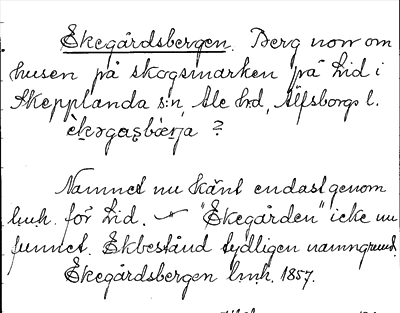 Ekegårdsbergen. Berg norr om
husen på skogsmarken på Lid i
Skepplanda s:n, Ale hd, Älfsborgs l.
èkǝrgaṣbær̀ja ?
Namnet nu känt endast genom
lmh. för Lid. — "Ekegården" icke nu
funnet. Ekbestånd tydligen namngrund.
Ekegårdsbergen lmh. 1857.